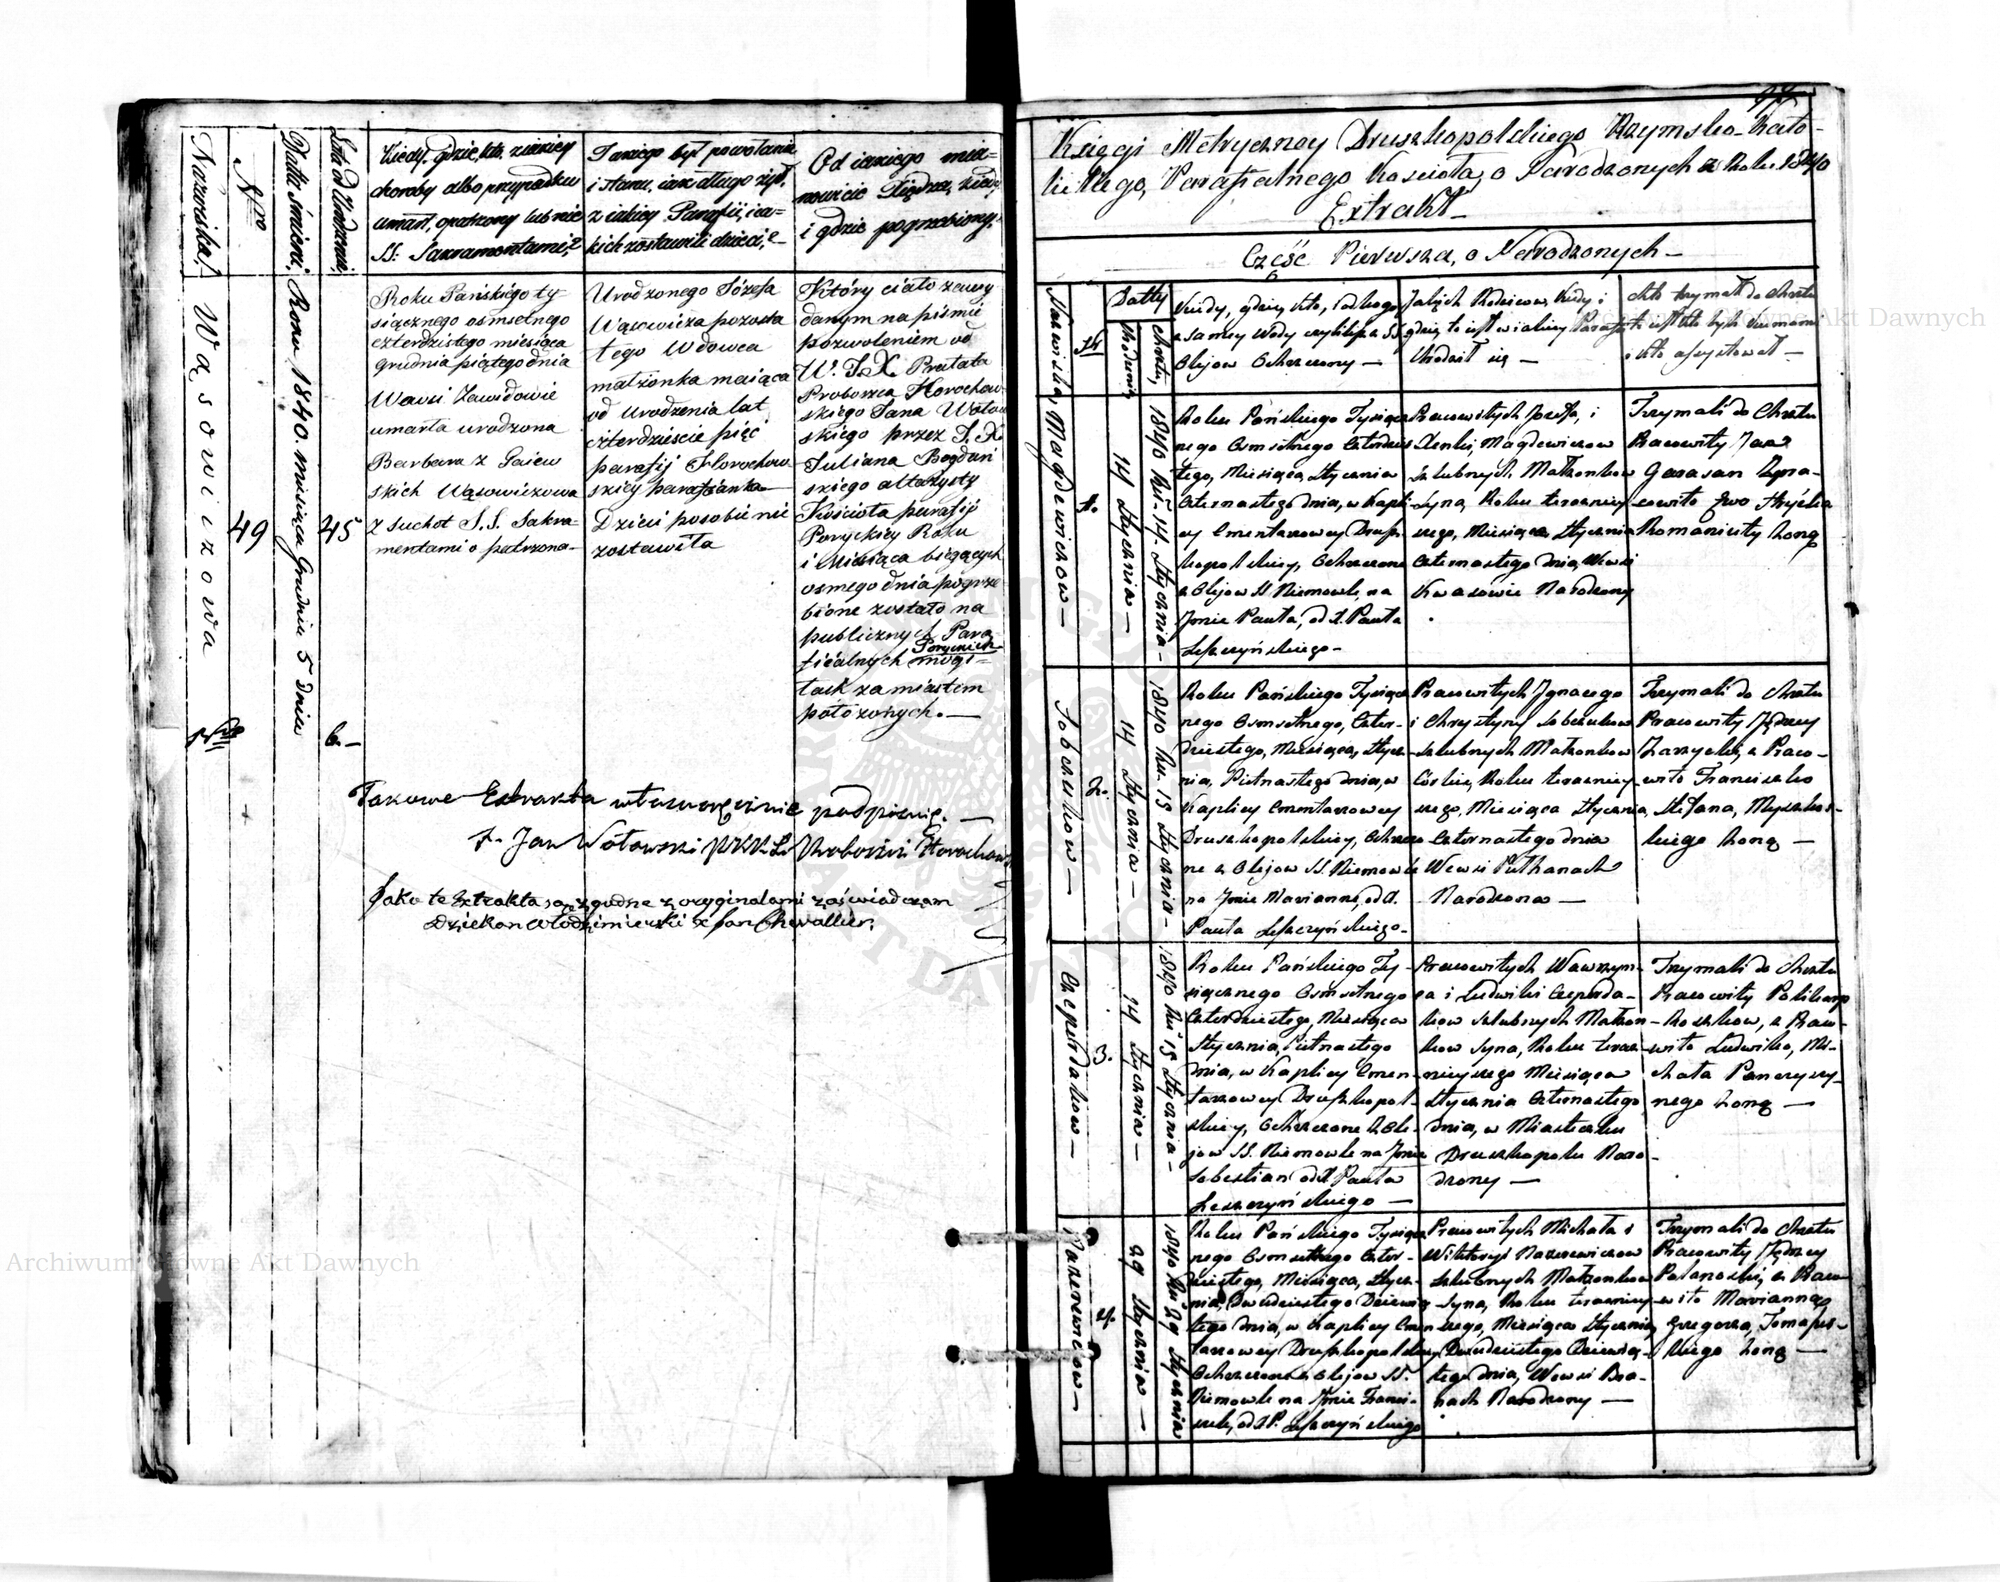 Nazwiska.
Nro
Datta śmierci,
Lata od Urodzenia,
Kiedy, gdzie, kto, z iakiey
choroby albo przypadku
umarł, opatrzony lub nie
SS. Sakramentami,?
Jakiego był powołania
i stanu, iak długo żył,
z iakiey Parafii, i ia=
kich zostawił dzieci,?
Od iakiego mia=
nowicie Xiędza, kiedy
i gdzie pogrzebiony,
Wąsowiczowa
49
Roku 1840. miesiąca Grudnia 5 dnia
45
Roku Pańskiego ty
siącznego osmsetnego
czterdziestego miesiąca
grudnia piątego dnia
Wewsi Zawidowie
umarła urodzona
Barbara z Gaiew
skich Wąsowiczowa
z suchot S.S. Sakra=
mentami opatrzona
Urodzonego Józefa
Wąsowicza pozosta
łego Wdowca
małżonka maiąca
od urodzenia lat
czterdzieście pięć
parafij Horochow
skiey parafianka
Dzieci posobie nie
zostawiła
Który ciało zawy
danym na piśmie
pozwoleniem od
W. J. X. Prałata
Proboszcza Horochow
skiego Jana Wołow
skiego przez J. X.
Juliana Bogdań
skiego altarzysty
Kościoła parafij
Poryckiey Roku
i Miesiąca bieżących
osmego dnia pogrze
bione zostało na
publicznych Para
Poryckich
fiialnych mogi=
łach za miastem
położonych. —
Nro
6. —
Takowe Extrakta własnoręcznie podpisuię. —
X. Jan Wołowski Proboszcz Horochow
Jako te Extrakta są zgodne z oryginałami zaświadczam
Dziekan Włodzimierski X Jan Chevallier.
97
Księgi Metryczney Druszkopolskiego Rzymsko-Kato-
lickiego, Parafialnego Kościoła, o Narodzonych z Roku 1840
Extrakt —
Część Pierwsza, o Narodzonych —
Nazwiska,
N
Datty
Urodzenia
Chrztu,
Kiedy, gdzie, kto, i od kogo
z samey Wody czyli też z SS
Olejow Ochrzczony —
Jakich Rodzicow, Kiedy i
gdzie, to iest w iakiey Parafii
Urodził się —
Kto trzymał do Chrztu
to iest kto byli Kumami
i kto asystował —
Magdewiczow —
1.
14 Stycznia —
1840 Ru. 14 Stycznia —
Roku Pańskiego Tysiącz
nego Osmsetnego Czterdzies
tego, Miesiąca Stycznia
Czternastego dnia, w Kapli
cy Cmentarzowey Drusz
kopolskiey, Ochrzczone
z Olejow SS Niemowle, na
Jmie Pawła, od X. Pawła
Leszczyńskiego —
Pracowitych Jozefa, i
Magdewiczow
Szlubnych Małżonkow
Syna, Roku teraźniey
szego, Miesiąca, Stycznia
Czternastego dnia, Wewsi
Kwasowie Narodzony
Trzymali do Chrztu
Pracowity Jan
Garasan z Pra-
cowitą Ewą
Romaniuty żoną
Sobczukow —
2.
14 Stycznia —
1840 Ru. 15 Stycznia —
Roku Pańskiego Tysiącz
nego Osmsetnego, Czter-
dziestego, Miesiąca, Stycz-
nia, Pietnastego dnia, w
Kaplicy Cmentarzowey
Druszkopolskiey, Ochrzczo
ne z Olejow SS. Niemowle
na Jmie Marianna, od X.
Pawła Leszczyńskiego —
Pracowitych Jgnacego
i Chrystyny Sobczukow
szlubnych Małżonkow
Córka, Roku teraźniey-
szego, Miesiąca Stycznia
Czternastego dnia
Wewsi Pułhanach
Narodzona —
Trzymali do Chrztu
Pracowity Jędrzey
Zarzycki, z Praco-
witą Franciszką
Stefana, Myszkow-
skiego żoną —
Czepirdakow —
3.
14 Stycznia —
1840 Ru 15 Stycznia —
Roku Pańskiego Ty-
siącznego Osmsetnego
Czterdziestego, Miesiąca
Stycznia, Pietnastego
dnia, w Kaplicy Cmen-
tarzowey Druszkopol-
skiey, Ochrzczone z Ole-
jow SS. Niemowle na Jmie
Sebestian od X Pawła
Leszczyńskiego —
Pracowitych Wawrzyn-
ca i Ludwiki Czepirda-
kow szlubnych Małżon-
kow Syna, Roku teraz-
nieyszego Miesiąca
Stycznia Czternastego
dnia, w Miasteczku
Druszkopolu Naro-
dzony —
Trzymali do Chrztu
Pracowity Polikarp
Roszkow, z Praco-
witą Ludwiką, Mi-
chała Panczyszy-
nego żoną —
Nazarewiczow —
4.
29 Stycznia —
1840 Ru 29 Stycznia
Roku Pańskiego Tysiącz
nego Osmsetnego Czter-
dziestego, Miesiąca, Stycz-
nia, Dwudziestego Dziewią
tego dnia, w Kaplicy Cmen
tarzowey Druszkopolskiey
Ochrzczone z Olejow SS.
Niemowle na Jmie Franci-
szek, od X P. Leszczyńskiego
Pracowitych Michała i
Wiktoryi Nazarewiczow
Szlubnych Małżonkow
Syna, Roku teraźniey-
szego, Miesiąca Stycznia
Dwudziestego Dziewią-
tego dnia, Wewsi
Narodzony —
Trzymali do Chrztu
Pracowity Jędrzey
z Praco-
witą Marianną
Grzegorza, Tomaszew-
skiego żoną —
Archiwum Główne Akt Dawnych
Archiwum Główne Akt Dawnych